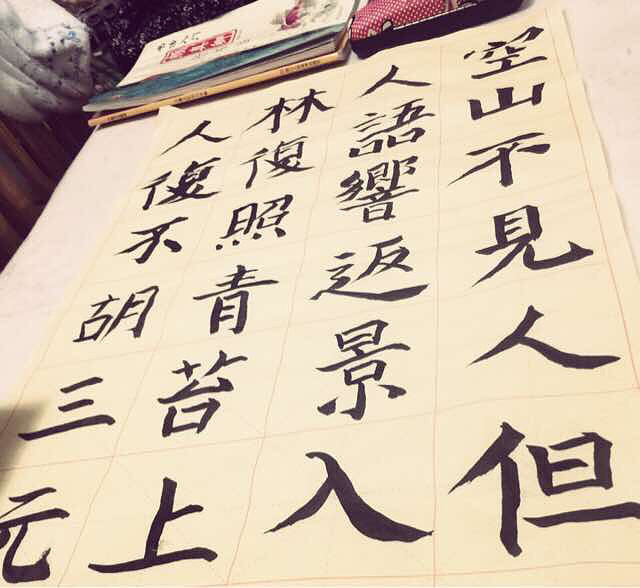 空山不見人但
人語響返景入
林復照青苔上
人復不胡三元